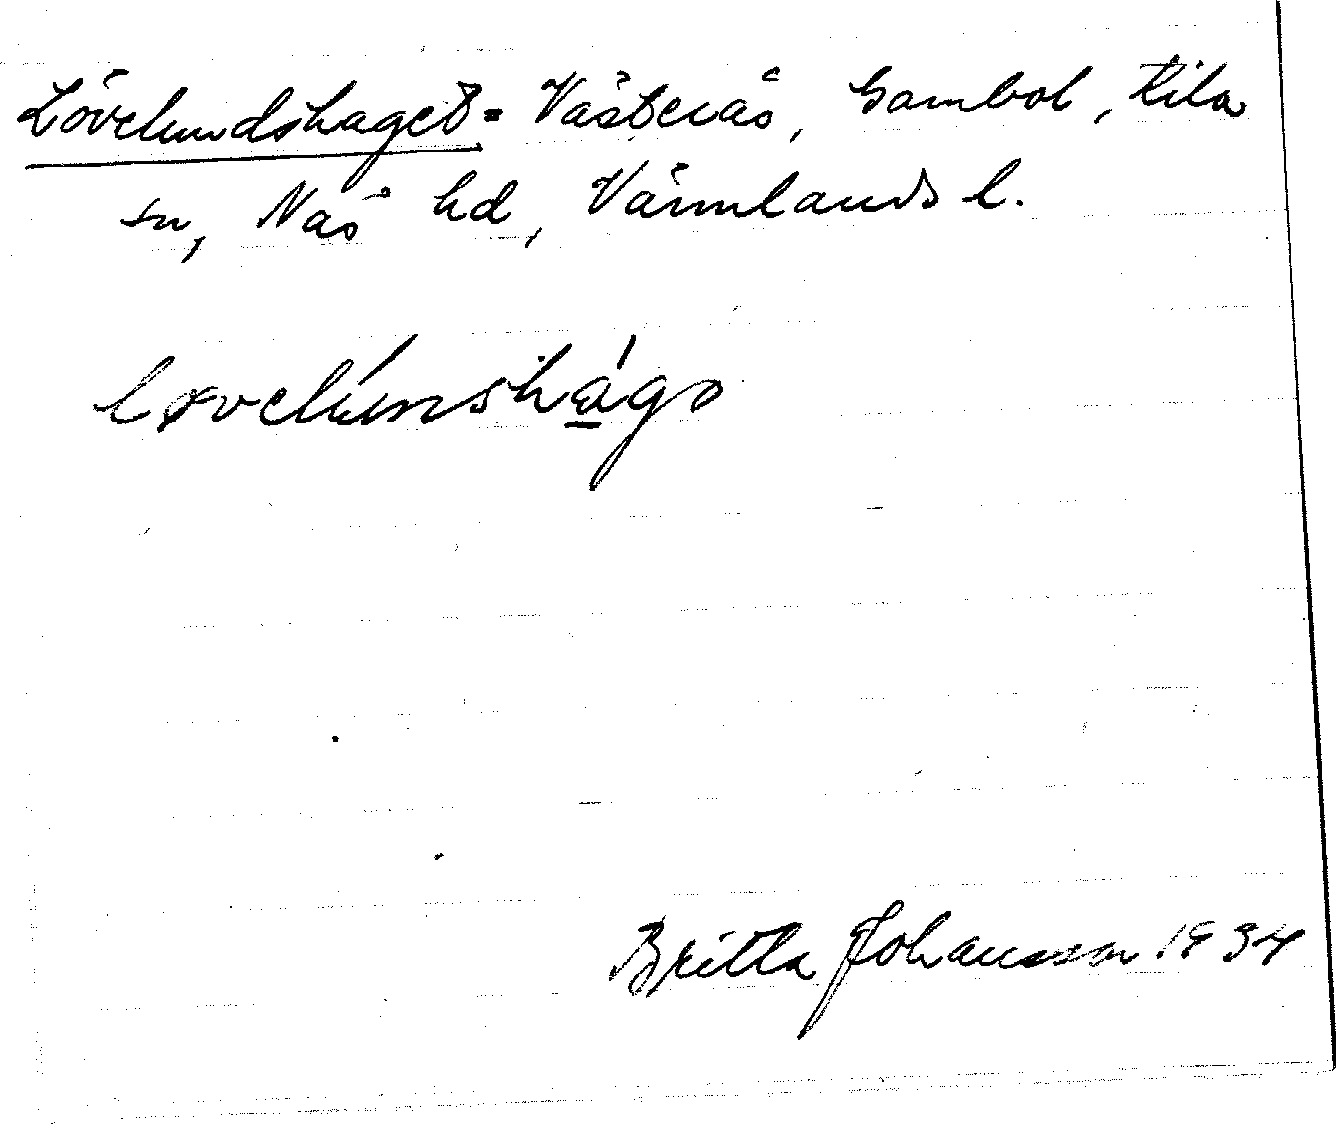 Lövelundshaget = Västerås, Gambol, Kila
sn, Näs hd, Värmlands l.
løvelúnshá̱gɔ
Britta Johansson 1934